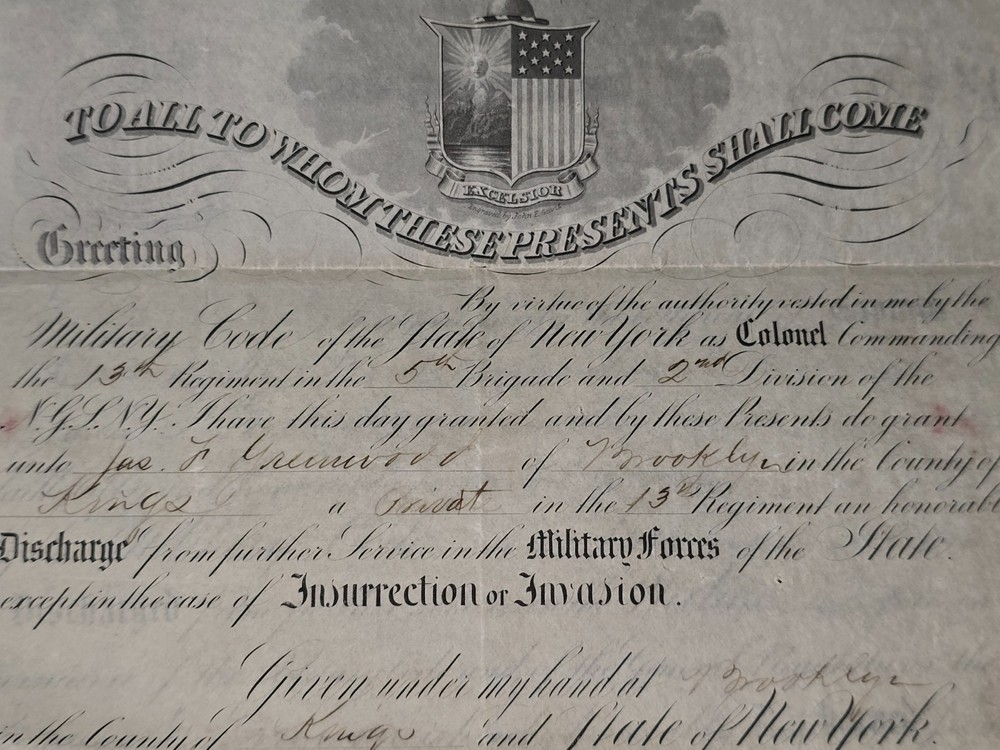 EXCELSIOR
TO ALL TO WHOM THESE PRESENTS SHALL COME
Greeting
By virtue of the authority vested in me by the
Military Code of the State of New York as Colonel Commanding
the 13th Regiment in the 5th Brigade and 2nd Division of the
N.G.S.N.Y. I have this day granted and by these Presents do grant
unto Jas. F Greenwood of Brooklyn in the County of
Kings a Privat in the 13th Regiment an honorabl
Discharge from further Service in the Military Forces of the State.
except in the case of Insurrection or Invasion.
Given under my hand at Brooklyn
in the County of Kings and State of New York.